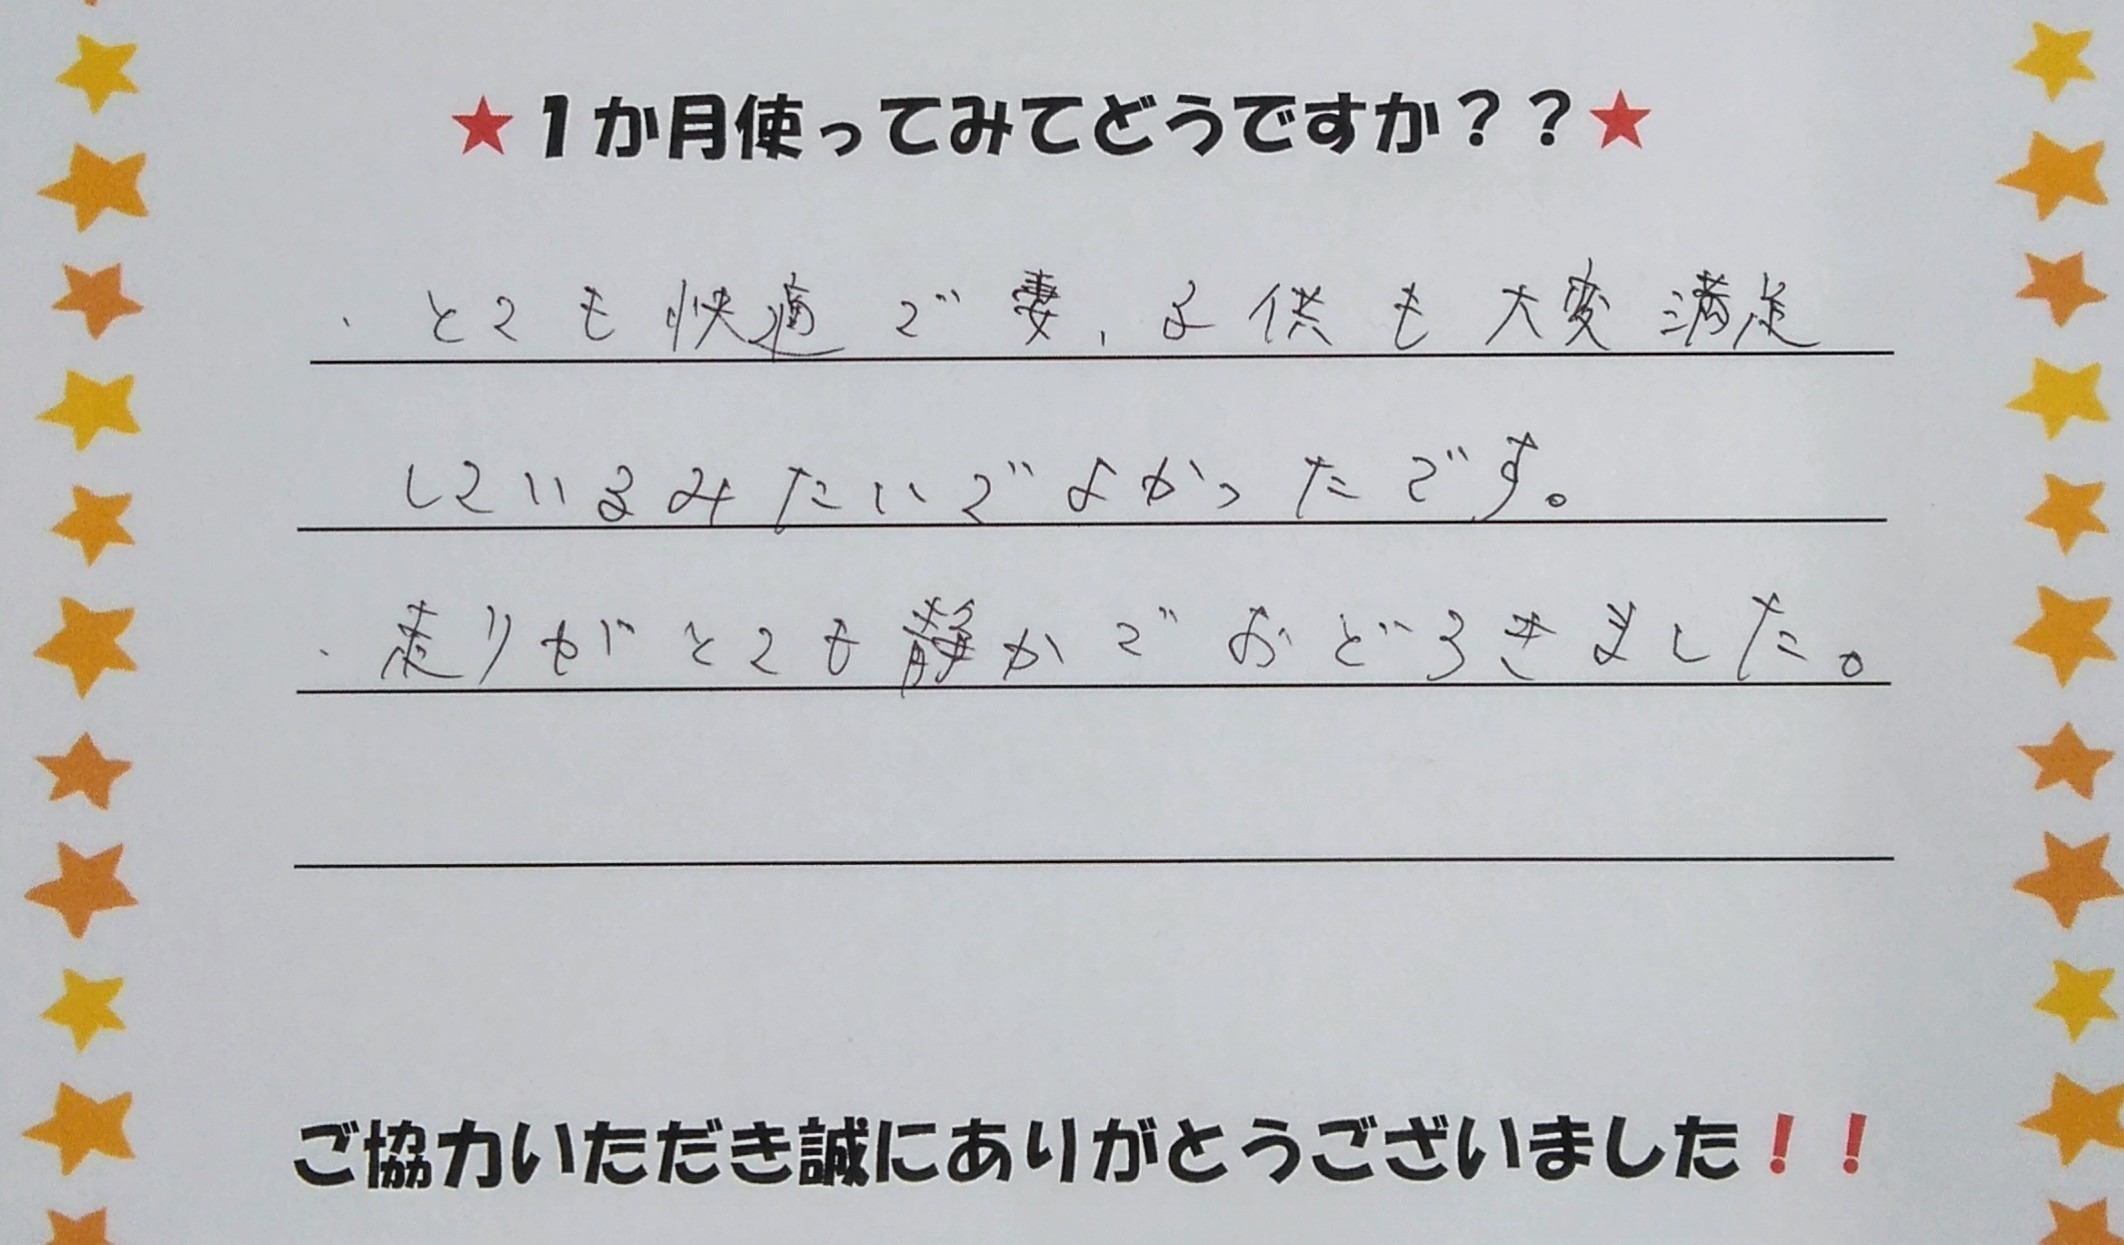 ★1か月使ってみてどうですか??★
・とても快適で妻、子供も大変満足
しているみたいでよかったです。
・走りがとても静かでおどろきました。
ご協力いただき誠にありがとうございました!!